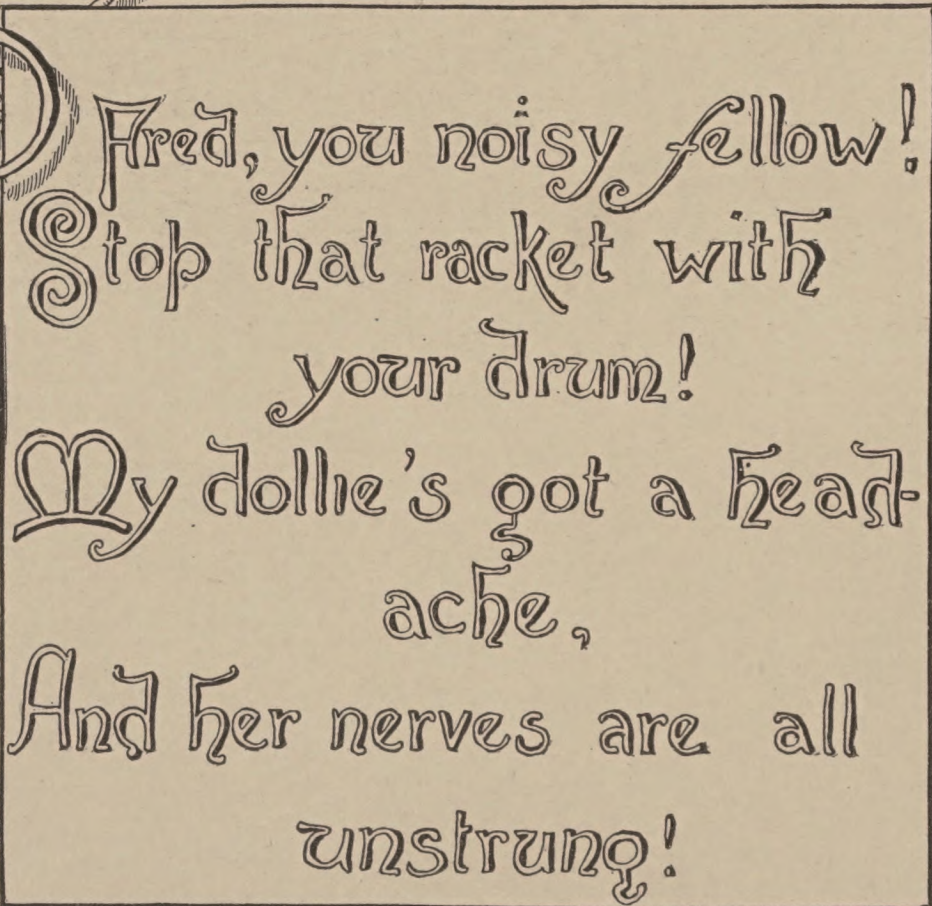 O Fred, you noisy fellow!
Stop that racket with
your drum!
My dollie's got a head-
ache,
And her nerves are all
unstrung!